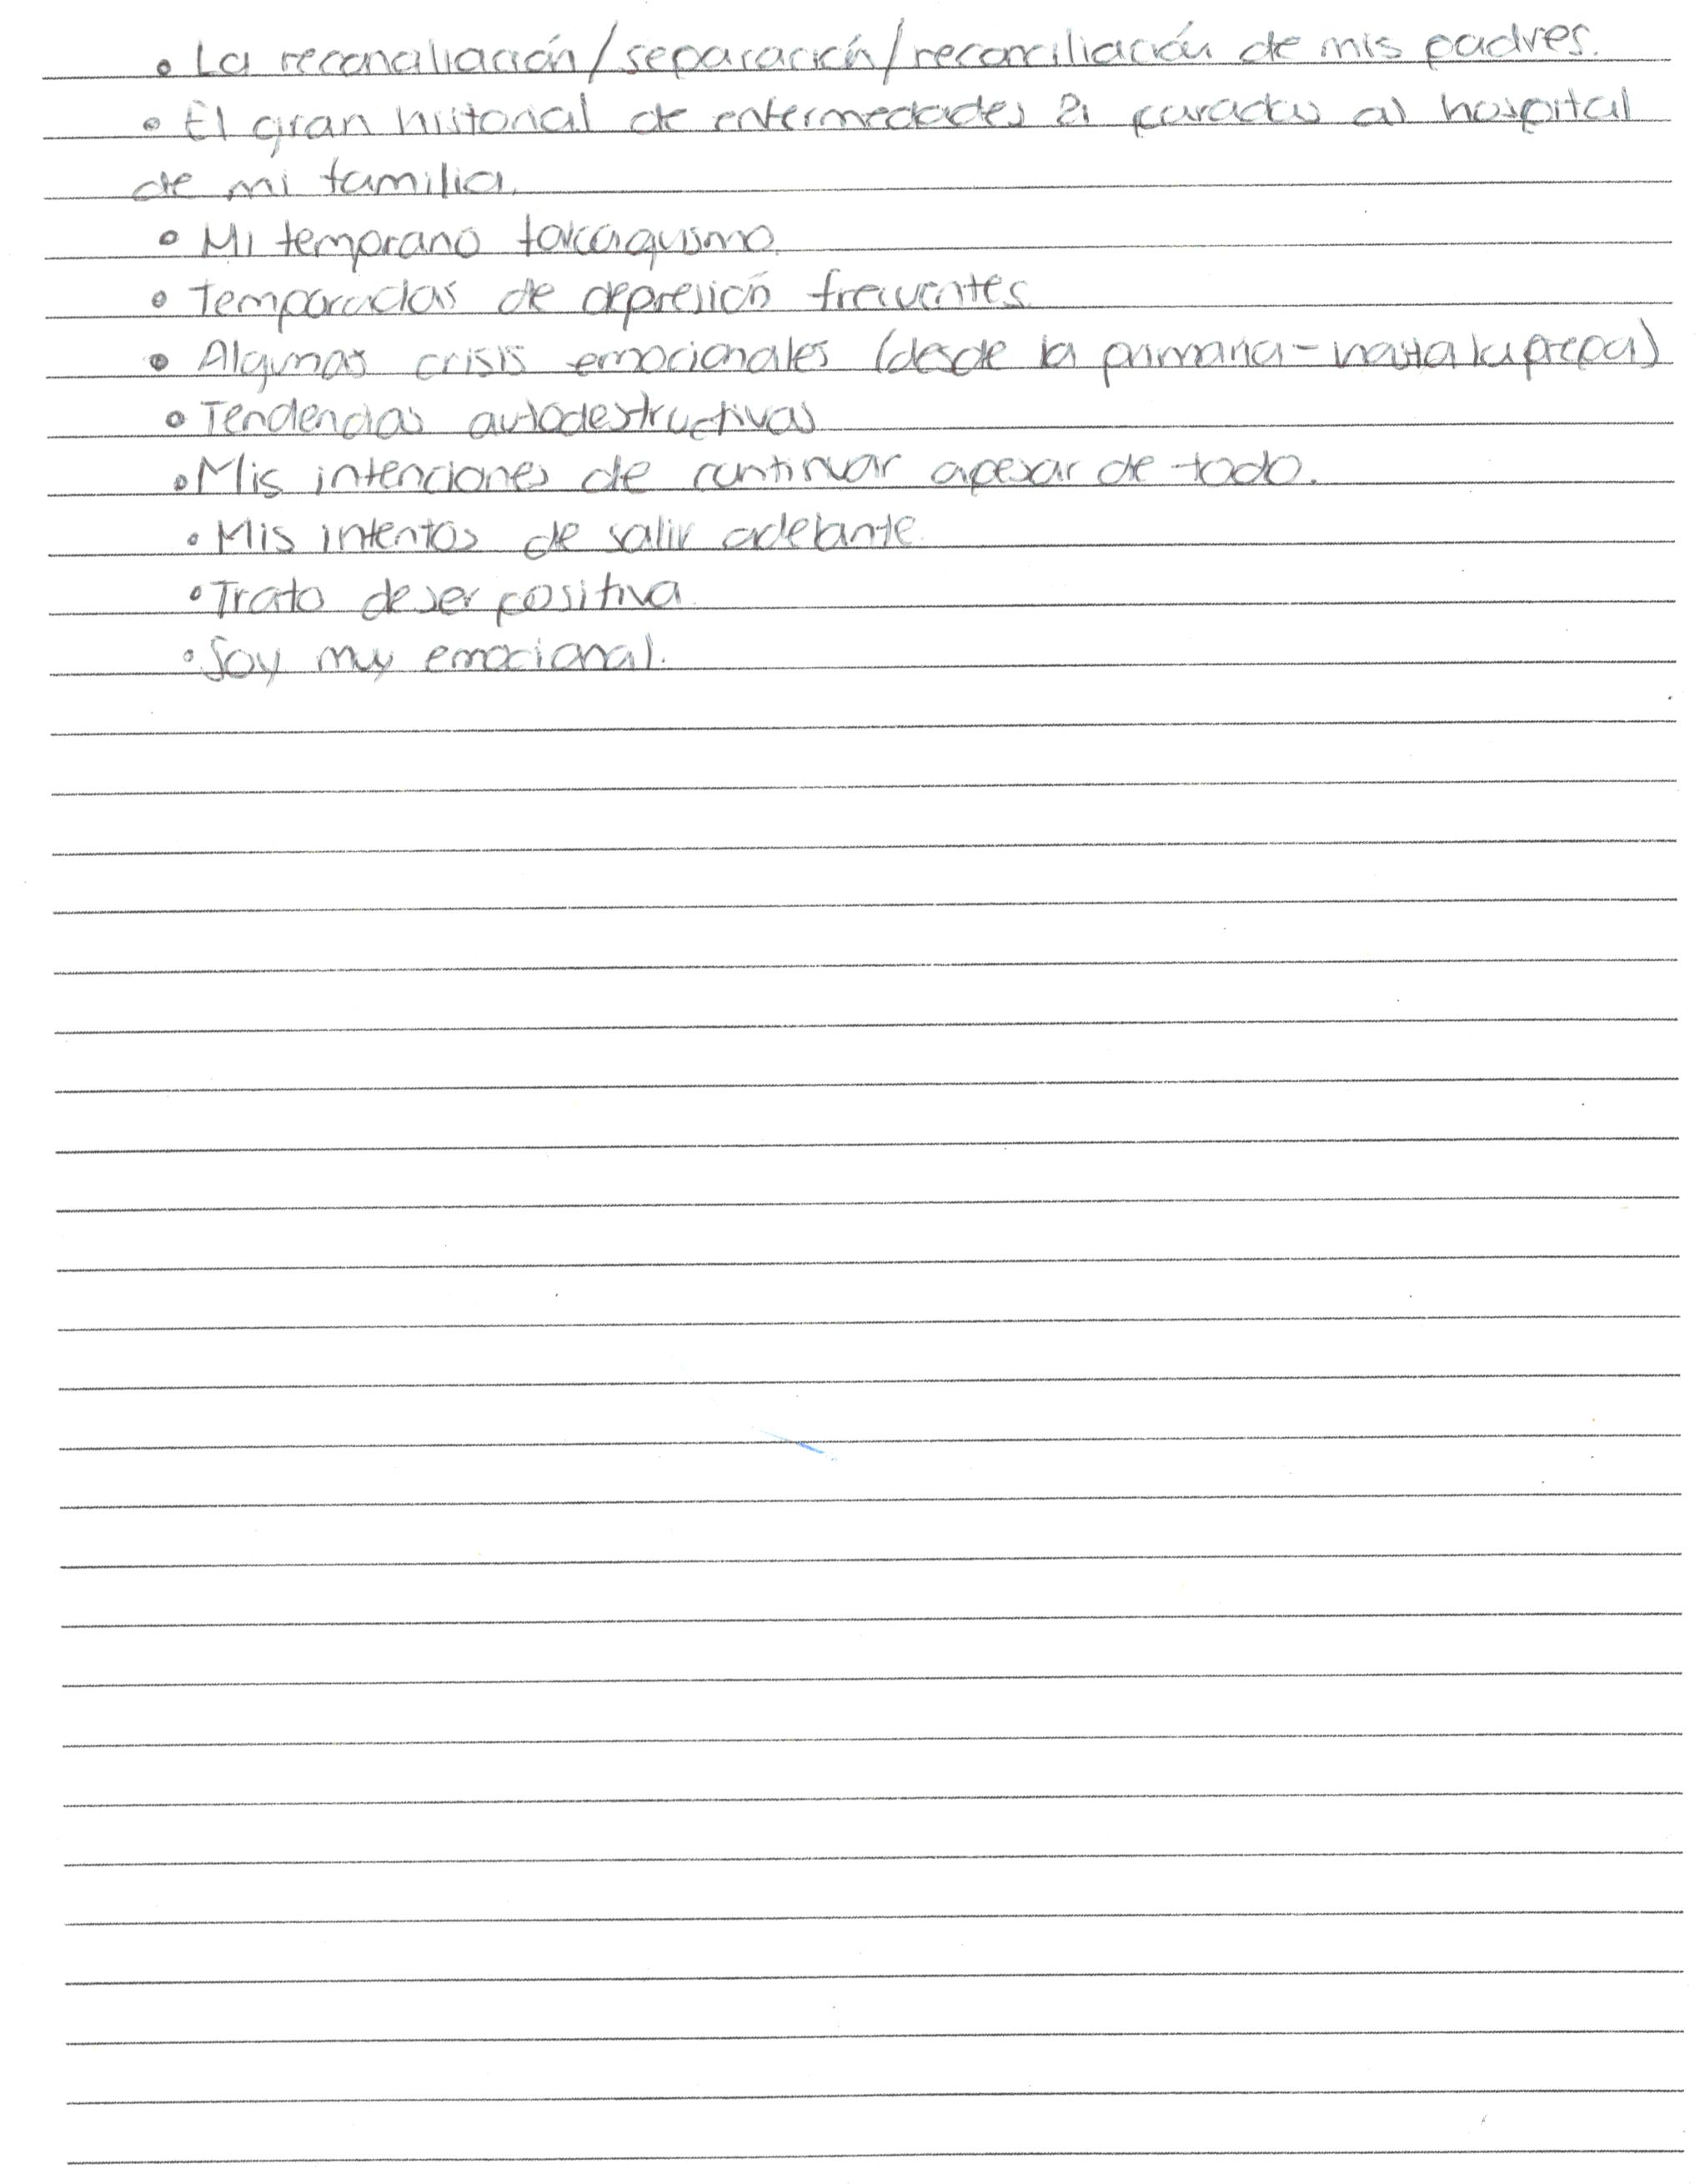 • La reconciliación/separación/reconciliación de mis padres.
• El gran historial de enfermedades & paradas al hospital
de mi familia.
• Mi temprano tabaquismo.
• Temporadas de depresión frecuentes
• Algunas crisis emocionales (desde la primaria - hasta la prepa)
• Tendencias autodestructivas
• Mis intenciones de continuar apesar de todo.
• Mis intentos de salir adelante.
• Trato de ser positiva.
• Soy muy emocional.